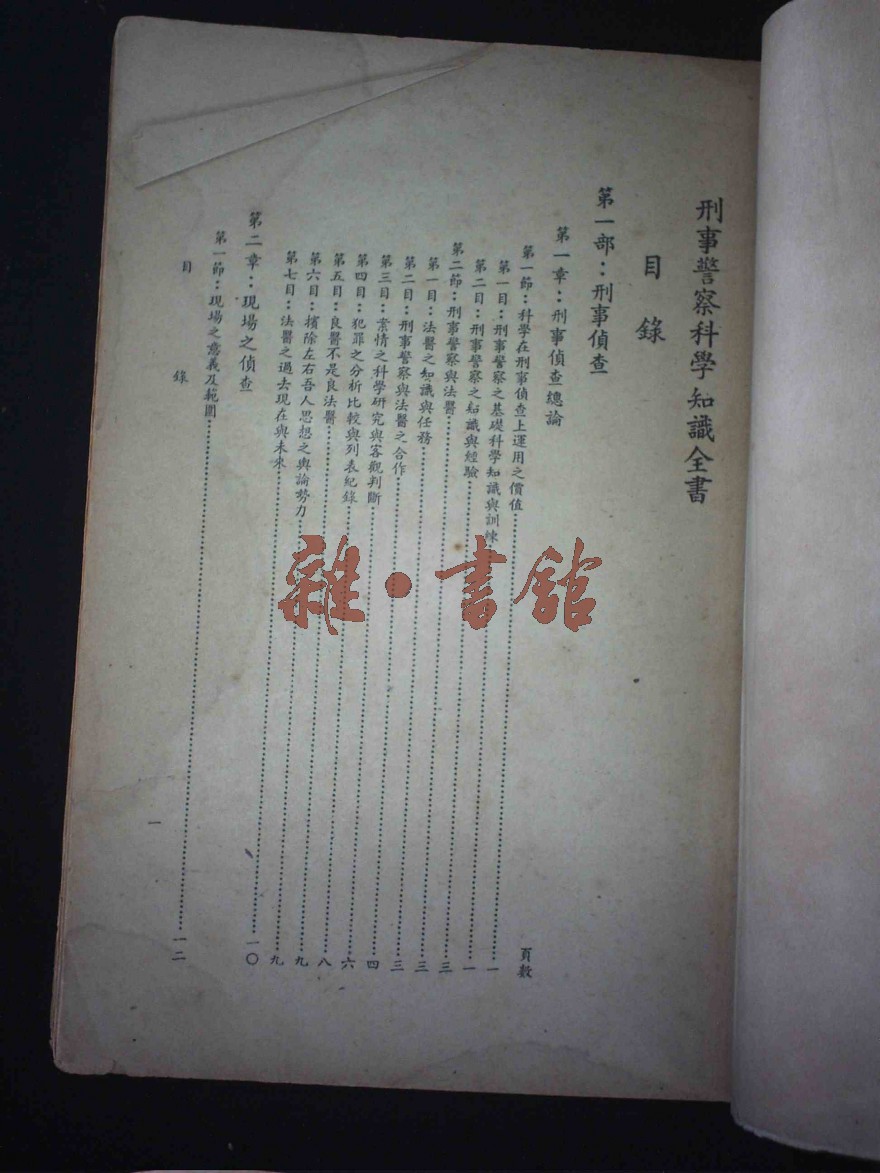 刑事警察科學知識全書
目錄
第一部：刑事偵查
第一章：刑事偵查總論
頁數
第一節：科學在刑事偵查上運用之價值……一
第一目：刑事警察之基礎科學知識與訓練……一
第二目：刑事警察之知識與經驗……三
第二節：刑事警察與法醫……三
第一目：法醫之知識與任務……三
第二目：刑事警察與法醫之合作……四
第三目：案情之科學研究與客觀判斷……六
第四目：犯罪之分析比較與列表紀錄……八
第五目：良醫不是良法醫……九
第六目：擯除左右吾人思想之輿論勢力……九
第七目：法醫之過去現在與未來……一〇
第二章：現場之偵查
第一節：現場之意義及範圍……一二
目錄
一
雜·書館